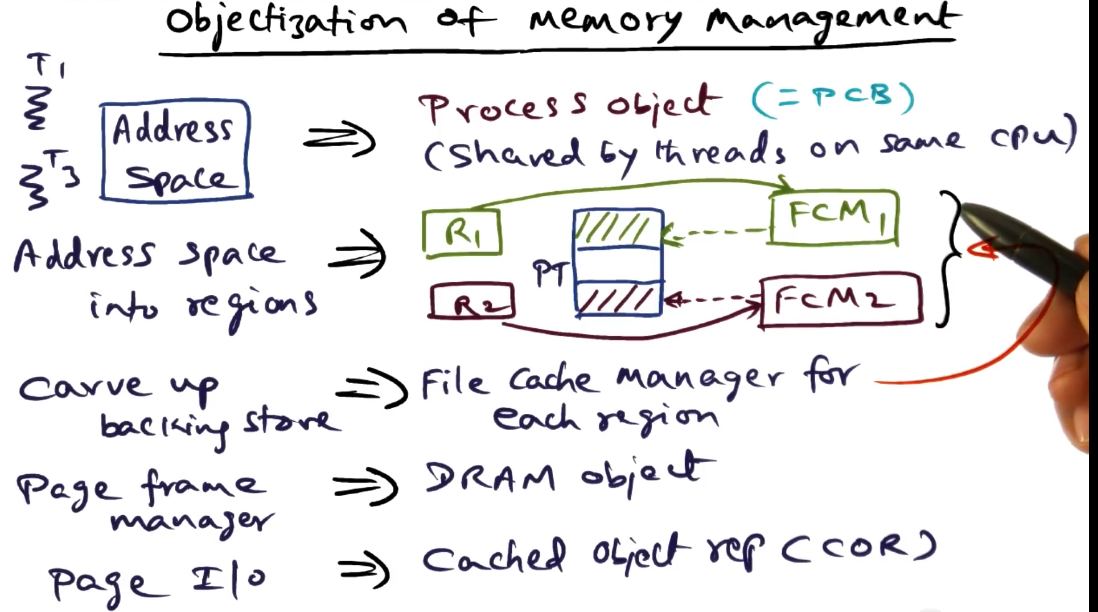 Objectization of memory management
T1
Address
Space
T3
⇒ Process object (= PCB)
(Shared by threads on same cpu)
Address space
into regions
⇒ R1 FCM1
PT
R2 FCM2
Carve up
backing store
⇒ File Cache manager for
each region
Page frame
manager
⇒ DRAM object
Page I/O ⇒ Cached object rep (COR)